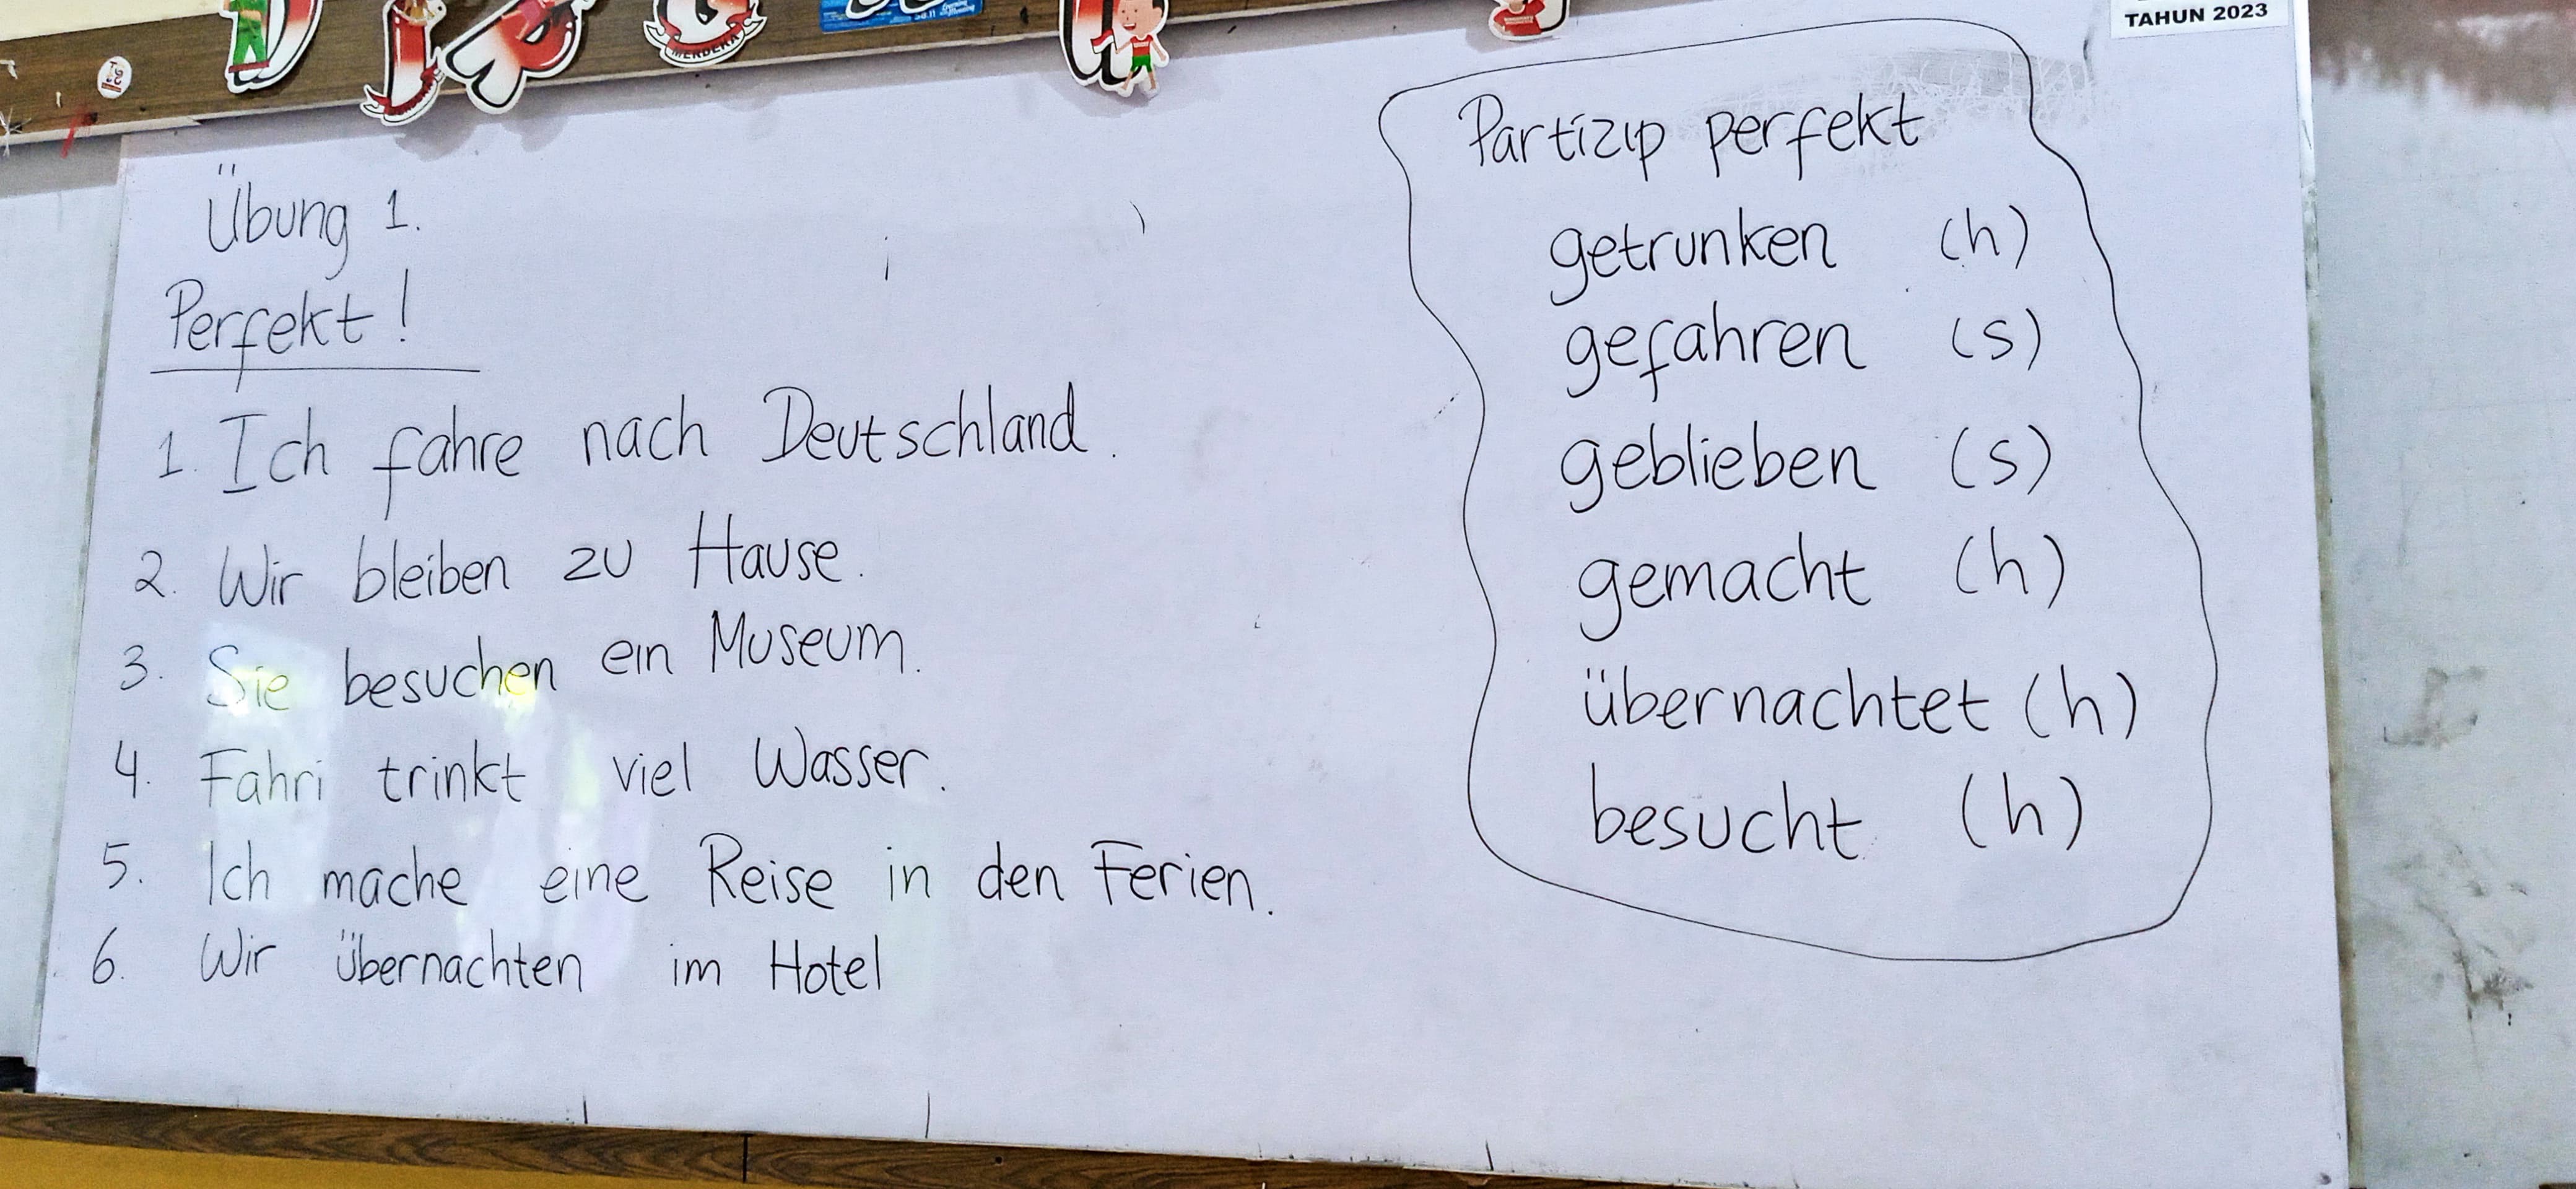 MERDEKA
TAHUN 2023
Übung 1.
Perfekt!
1. Ich fahre nach Deutschland.
2. Wir bleiben zu Hause.
3. Sie besuchen ein Museum.
4. Fahri trinkt viel Wasser.
5. Ich mache eine Reise in den Ferien.
6. Wir übernachten im Hotel
Partizip perfekt
getrunken (h)
gefahren (s)
geblieben (s)
gemacht (h)
übernachtet (h)
besucht (h)